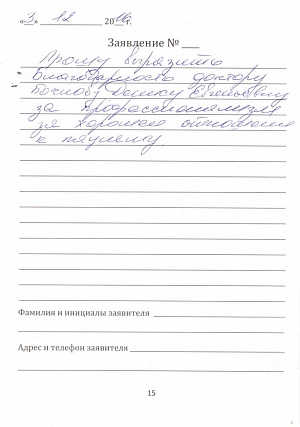 «3» 12 2016г.
Заявление № __
Прошу выразить
благодарность доктору
Денису Евгеньевичу
за профессионализм
за хорошее отношение
к
Фамилия и инициалы заявителя
Адрес и телефон заявителя
15